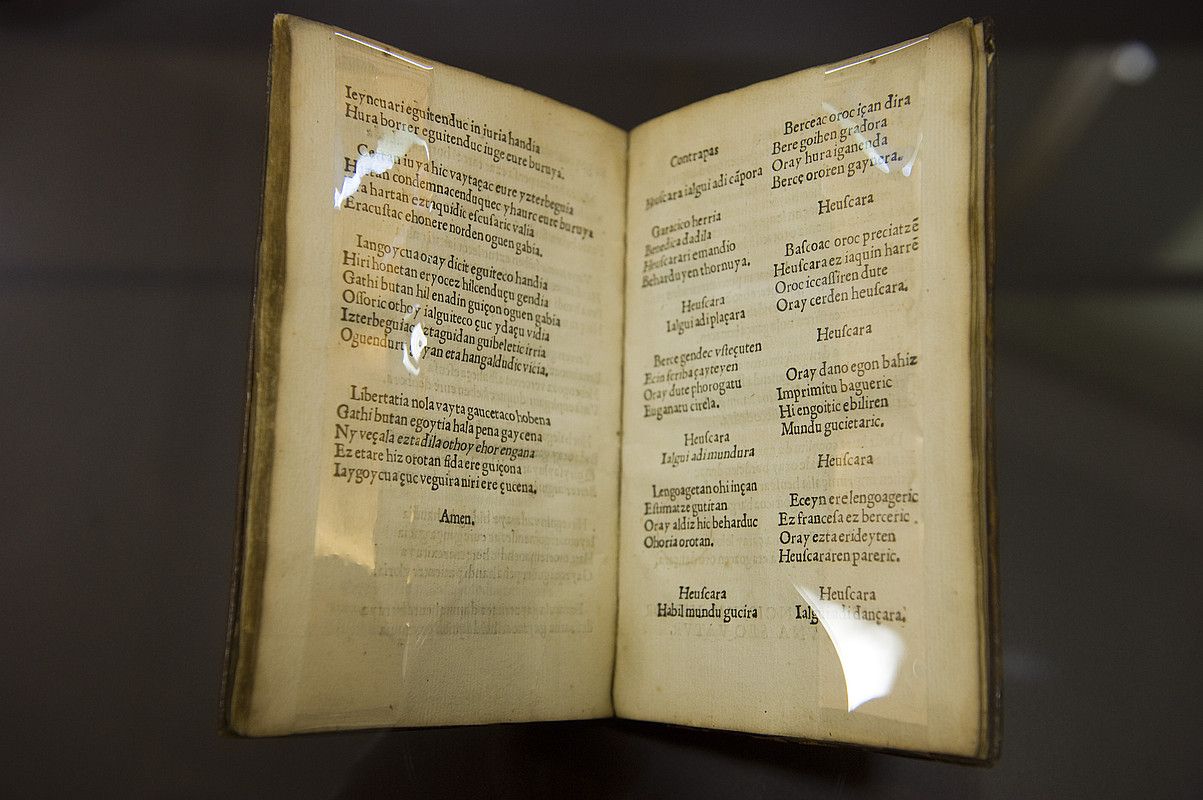 Ieyncuari eguitenduc in iuria handia
Hura borrer eguitenduc iuge eure buruya.
iuya hic vaytaçac eure yzterbeguia
condemnacenduquec yhaurc eure buruya
hartan eztaquidic escusaric valia
Eracustac ehonere norden oguen gabia.
Iangoycua oray dicit eguiteco handia
Hiri honetan eryocez hilcenduçu gendia
Gathi butan hil enadin guiçon oguen gabia
Osforic othoy ialguiteco çuc ydaçu vidia
Izterbeguiac eztaguidan guibeletic irria
yan eta hangaldudic vicia.
Libertatia nola vayta gaucetaco hobena
Gathi butan egoytia hala pena gaycena
Ny veçala eztadila othoy ehor engana
Ez etare hiz orotan fida ere guiçona
Iaygoycua çuc veguira niri ere çucena.
Amen.
Contrapas
Heuſcara ialgui adi cãpora
Garacico herria
Benedica dadila
Heuſcarari emandio
Beharduyen thornuya.
Heuſcara
Ialgui adi plaçara
Berce gendec vſteçuten
Ecin ſcriba çayteyen
Oray dute phorogatu
Euganatu cirela.
Heuſcara
Ialgui adi mundura
Lengoagetan ohi inçan
Eſtimatze gutitan
Oray aldiz hic beharduc
Ohoria orotan.
Heuſcara
Habil mundu gucira
Berceac oroc içan dira
Bere goihen gradora
Oray hura iganenda
Berce ororen gaynera.
Heuſcara
Baſcoac oroc preciatzẽ
Heuſcara ez iaquin harrẽ
Oroc iccaſſiren dute
Oray cerden heuſcara.
Heuſcara
Oray dano egon bahiz
Imprimitu bagueric
Hi engoitic ebiliren
Mundu gucietaric.
Heuſcara
Eceyn ere lengoageric
Ez franceſa ez berceric
Oray ezta erideyten
Heuſcararen pareric.
Heuſcara
Ialgui adi dançara.